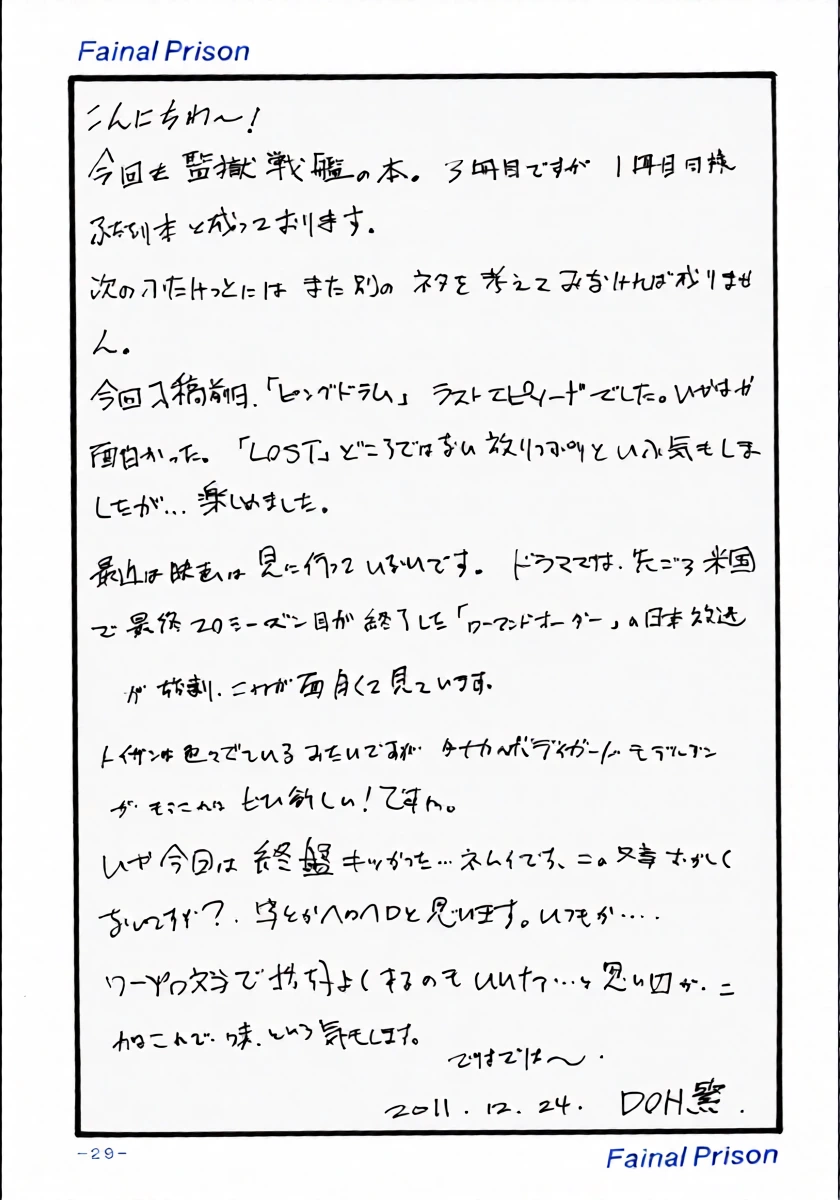 Fainal Prison
こんにちわ〜!
今回も 監獄 戦艦の本。 3冊目ですが 1冊目同様
ふたなり本 と成っております。
次のふたけっとには また別の ネタを 考えてみなければ成りませ
ん。
今回入稿前日、「ピングドラム」 ラストエピソードでした。いやはや
面白かった。 「LOST」どころではない 放りっぷりと いふ気もしま
したが… 楽しめました。
最近は映画は 見に行って いないです。 ドラマでは、先ごろ 米国
で 最終 20シーズン目が 終了した「ローアンドオーダー」の日本放送
が 始まり、これが面白くて見ています。
トイガンは 色々でている みたいですが タナカの ボディガード モデルガン
が ぜひ欲しい!ですね。
いや 今回は 終盤 キツかった… ネムイです、この文章 おかしく
ないですか?、字とかヘロヘロと思います。いつもか….
ワープロ文字で 格好よくするのも いいナァ…と 思い
これで 味、という気もします。
ではでは〜.
2011. 12. 24. DOH繁.
-29-
Fainal Prison